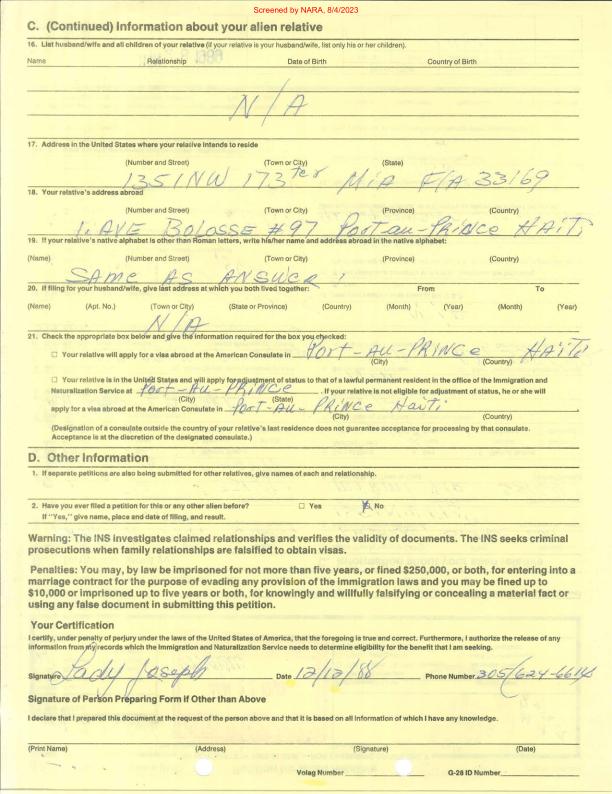 Screened by NARA, 8/4/2023
C. (Continued) Information about your alien relative
16. List husband/wife and all children of your relative (if your relative is your husband/wife, list only his or her children).
Name Relationship Date of Birth Country of Birth
N/A
17. Address in the United States where your relative intends to reside
(Number and Street) (Town or City) (State)
1351 NW 173 ter MiA F/A 33169
18. Your relative's address abroad
(Number and Street) (Town or City) (Province) (Country)
1. AVE BOLOSSE #97 Port-au-PRiNCe HAiTi
19. If your relative's native alphabet is other than Roman letters, write his/her name and address abroad in the native alphabet:
(Name) (Number and Street) (Town or City) (Province) (Country)
SAME AS ANSWER
20. If filing for your husband/wife, give last address at which you both lived together: From To
(Name) (Apt. No.) (Town or City) (State or Province) (Country) (Month) (Year) (Month) (Year)
N/A
21. Check the appropriate box below and give the information required for the box you checked:
☐ Your relative will apply for a visa abroad at the American Consulate in Port-Au-PRiNCe HAiTi
(City) (Country)
☐ Your relative is in the United States and will apply for adjustment of status to that of a lawful permanent resident in the office of the Immigration and
Naturalization Service at Port-Au-PRiNCe. If your relative is not eligible for adjustment of status, he or she will
(City) (State)
apply for a visa abroad at the American Consulate in Port-Au-PRiNCe Haiti
(City) (Country)
(Designation of a consulate outside the country of your relative's last residence does not guarantee acceptance for processing by that consulate.
Acceptance is at the discretion of the designated consulate.)
D. Other Information
1. If separate petitions are also being submitted for other relatives, give names of each and relationship.
2. Have you ever filed a petition for this or any other alien before? ☐ Yes ☒ No
If "Yes," give name, place and date of filing, and result.
Warning: The INS investigates claimed relationships and verifies the validity of documents. The INS seeks criminal
prosecutions when family relationships are falsified to obtain visas.
Penalties: You may, by law be imprisoned for not more than five years, or fined $250,000, or both, for entering into a
marriage contract for the purpose of evading any provision of the immigration laws and you may be fined up to
$10,000 or imprisoned up to five years or both, for knowingly and willfully falsifying or concealing a material fact or
using any false document in submitting this petition.
Your Certification
I certify, under penalty of perjury under the laws of the United States of America, that the foregoing is true and correct. Furthermore, I authorize the release of any
information from my records which the Immigration and Naturalization Service needs to determine eligibility for the benefit that I am seeking.
Signature Lady Joseph Date 12/12/88 Phone Number 305/624-6614
Signature of Person Preparing Form if Other than Above
I declare that I prepared this document at the request of the person above and that it is based on all information of which I have any knowledge.
(Print Name) (Address) (Signature) (Date)
Volag Number G-28 ID Number